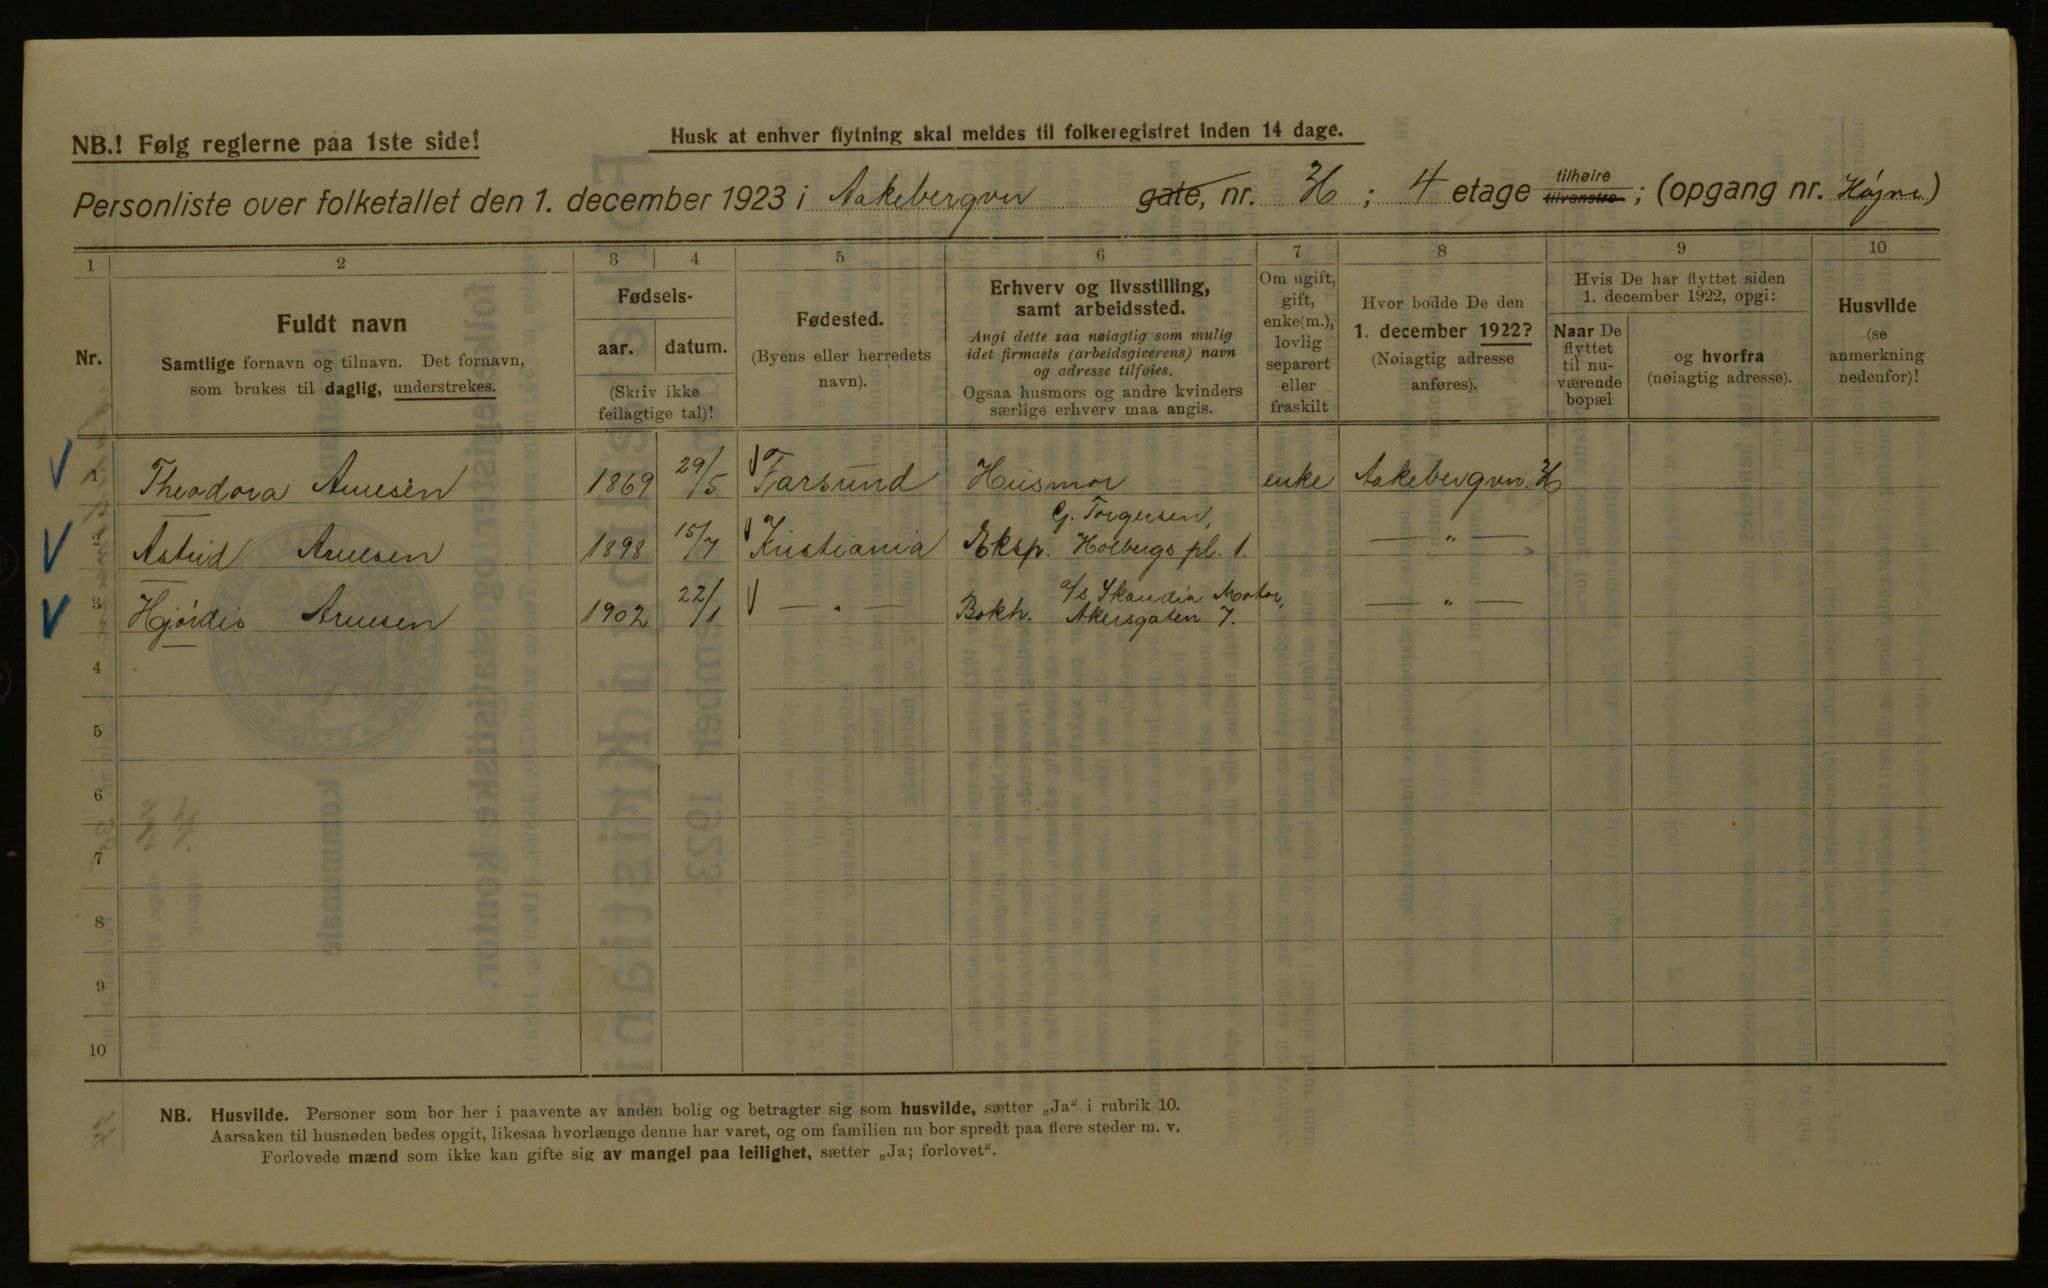 NB.! Følg reglerne paa 1ste side!
Husk at enhver flytning skal meldes til folkeregistret inden 14 dage.
Personliste over folketallet den 1. december 1923 i Aakebergvn gate, nr. ; 4 etage tilhøire tilvenstre ; (opgang nr. )
1 2 3 4 5 6 7 8 9 10
Nr.
Fuldt navn
Samtlige fornavn og tilnavn. Det fornavn,
som brukes til daglig, understrekes.
Fødsels-
aar. datum.
(Skriv ikke
feilagtige tal)!
Fødested.
(Byens eller herredets
navn).
Erhverv og livsstilling,
samt arbeidssted.
Angi dette saa nøiagtig som mulig
idet firmaets (arbeidsgiverens) navn
og adresse tilføies.
Ogsaa husmors og andre kvinders
særlige erhverv maa angis.
Om ugift,
gift,
enke(m.),
lovlig
separert
eller
fraskilt
Hvor bodde De den
1. december 1922?
(Nøiagtig adresse
anføres).
Hvis De har flyttet siden
1. december 1922, opgi:
Naar De
flyttet
til nu-
værende
bopæl
og hvorfra
(nøiagtig adresse).
Husvilde
(se
anmerkning
nedenfor)!
1 Theodora Arnesen 1869 29/5 Farsund Husmor enke Aakebergvn.
2 Astrid Arnesen 1898 15/7 Kristiania Eksp. G. Torgersen, Holbergs pl. 1. — „ —
3 Hjórdis Arnesen 1902 22/1 — „ — Bokh. a/s Skandia Motor, Akersgaten 7. — „ —
4
5
6
7
8
9
10
NB. Husvilde. Personer som bor her i paavente av anden bolig og betragter sig som husvilde, sætter „Ja" i rubrik 10.
Aarsaken til husnøden bedes opgit, likesaa hvorlænge denne har varet, og om familien nu bor spredt paa flere steder m. v.
Forlovede mænd som ikke kan gifte sig av mangel paa leilighet, sætter „Ja; forlovet".